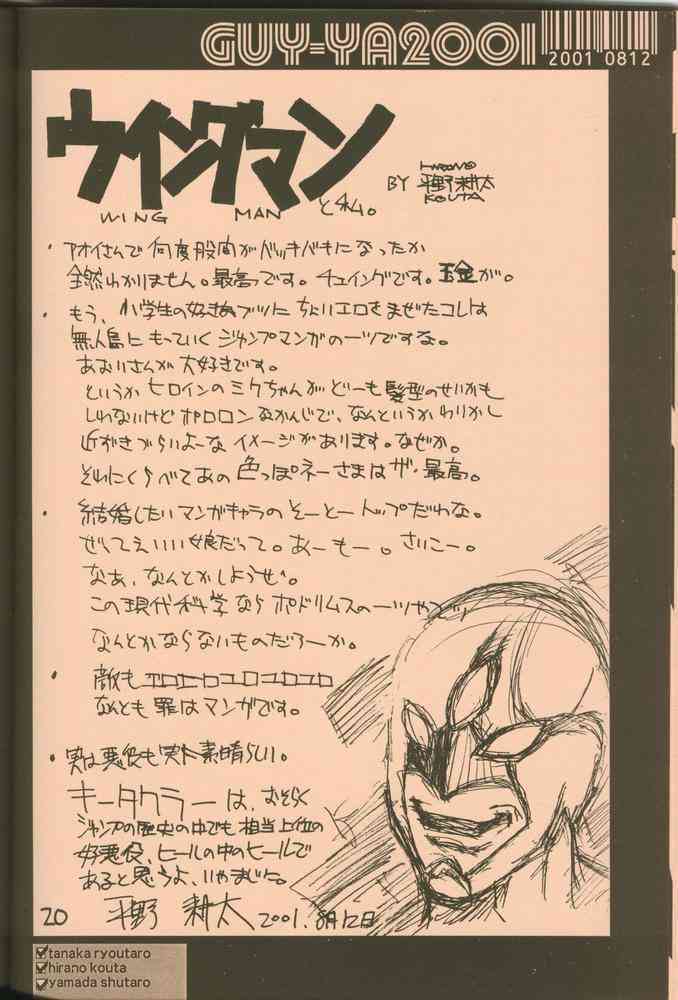 GUY-YA2001
2001 0812
ウイングマン
WING MAN と私。
BY 平野耕太
KOUTA
・アオイさんで何度股間がバッキバキになったか
全然わかりません。最高です。チュイングです。玉金が。
・もう、小学生の好きなブツに ちょいエロをまぜたコレは
無人島にもっていくジャンプマンガの一ツですな。
あおいさんが大好きです。
というかヒロインのミクちゃんがどーも髪型のせいかも
しれないけどポロロンなかんじで、なんというかわりかし
近づきづらいよーなイメージがあります。なぜか。
それにくらべてあの色っぽネーさまはザ・最高。
・結婚したいマンガキャラのそーとートップだわな。
ぜってえいい娘だって。あーもー。さいこー。
なあ、なんとかしようぜ。
この現代科学ならポドリムスの一ツや二ツ
なんとかならないものだろーか。
・敵もエロエロユロユロユロ
なんとも罪はマンガです。
・実は悪役も実に素晴らしい。
キータクラーは、おそらく
ジャンプの歴史の中でも相当上位の
好悪役、ヒールの中のヒールで
あると思うよ、いやまじに。
20 平野 耕太 2001.8月12日
tanaka ryoutaro
hirano kouta
yamada shutaro